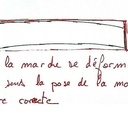 la marche se déform
sous la pose de la ma
re correcte